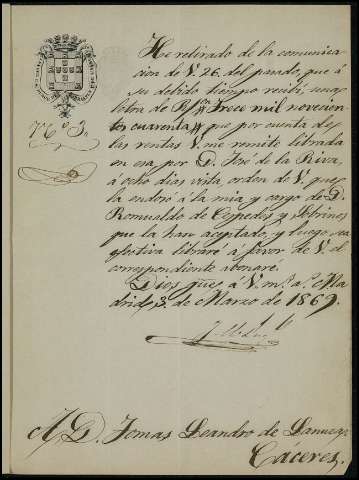 Nº 3.
He retirado de la comunica-
cion de V. 26. del pasado, que á
su debido tiempo recibí, una
letra de Rs. Trece mil novecien-
tos cuarenta, que por cuenta de
las rentas V. me remite librada
en esa por D. José de la Riva,
á ocho dias vista, orden de V. que
la endosó á la mia y cargo de D.
Romualdo de Cespedes y Sobrinos
que la han aceptado, y luego sea
efectiva libraré á favor de V. el
correspondiente abonaré.
Dios gue. á V. m.s a.s Ma-
drid, 3. de Marzo de 1869.
D. Tomas Leandro de Lanuza.
Cáceres.